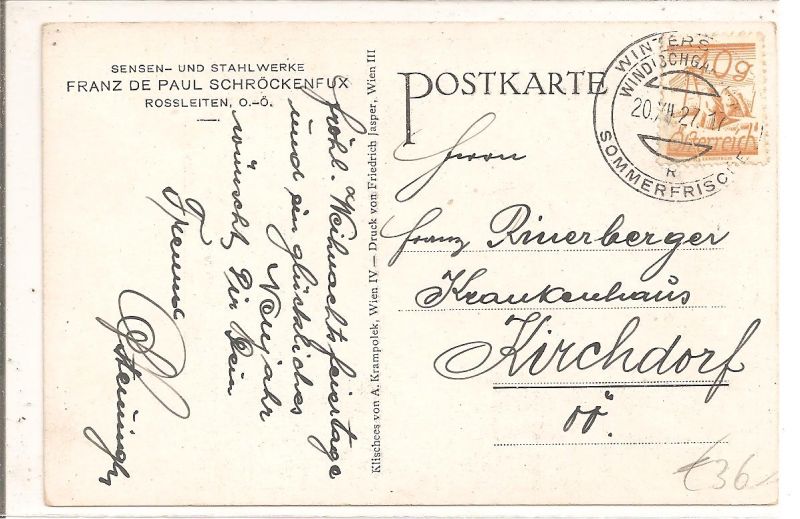 SENSEN- UND STAHLWERKE
FRANZ DE PAUL SCHRÖCKENFUX
ROSSLEITEN, O.-Ö.
fröhl. Weihnachtsfeiertage
und ein glückliches
Neujahr
wünscht Dir Dein
Klischees von A. Krampolek, Wien IV — Druck von Friedrich Jasper, Wien III
POSTKARTE
WINTERS
WINDISCHGA
20.XII.27.17
R
SOMMERFRISCHE
0g
Österreich
Herrn
Franz Rinerberger
Krankenhaus
Kirchdorf
OÖ.
€36